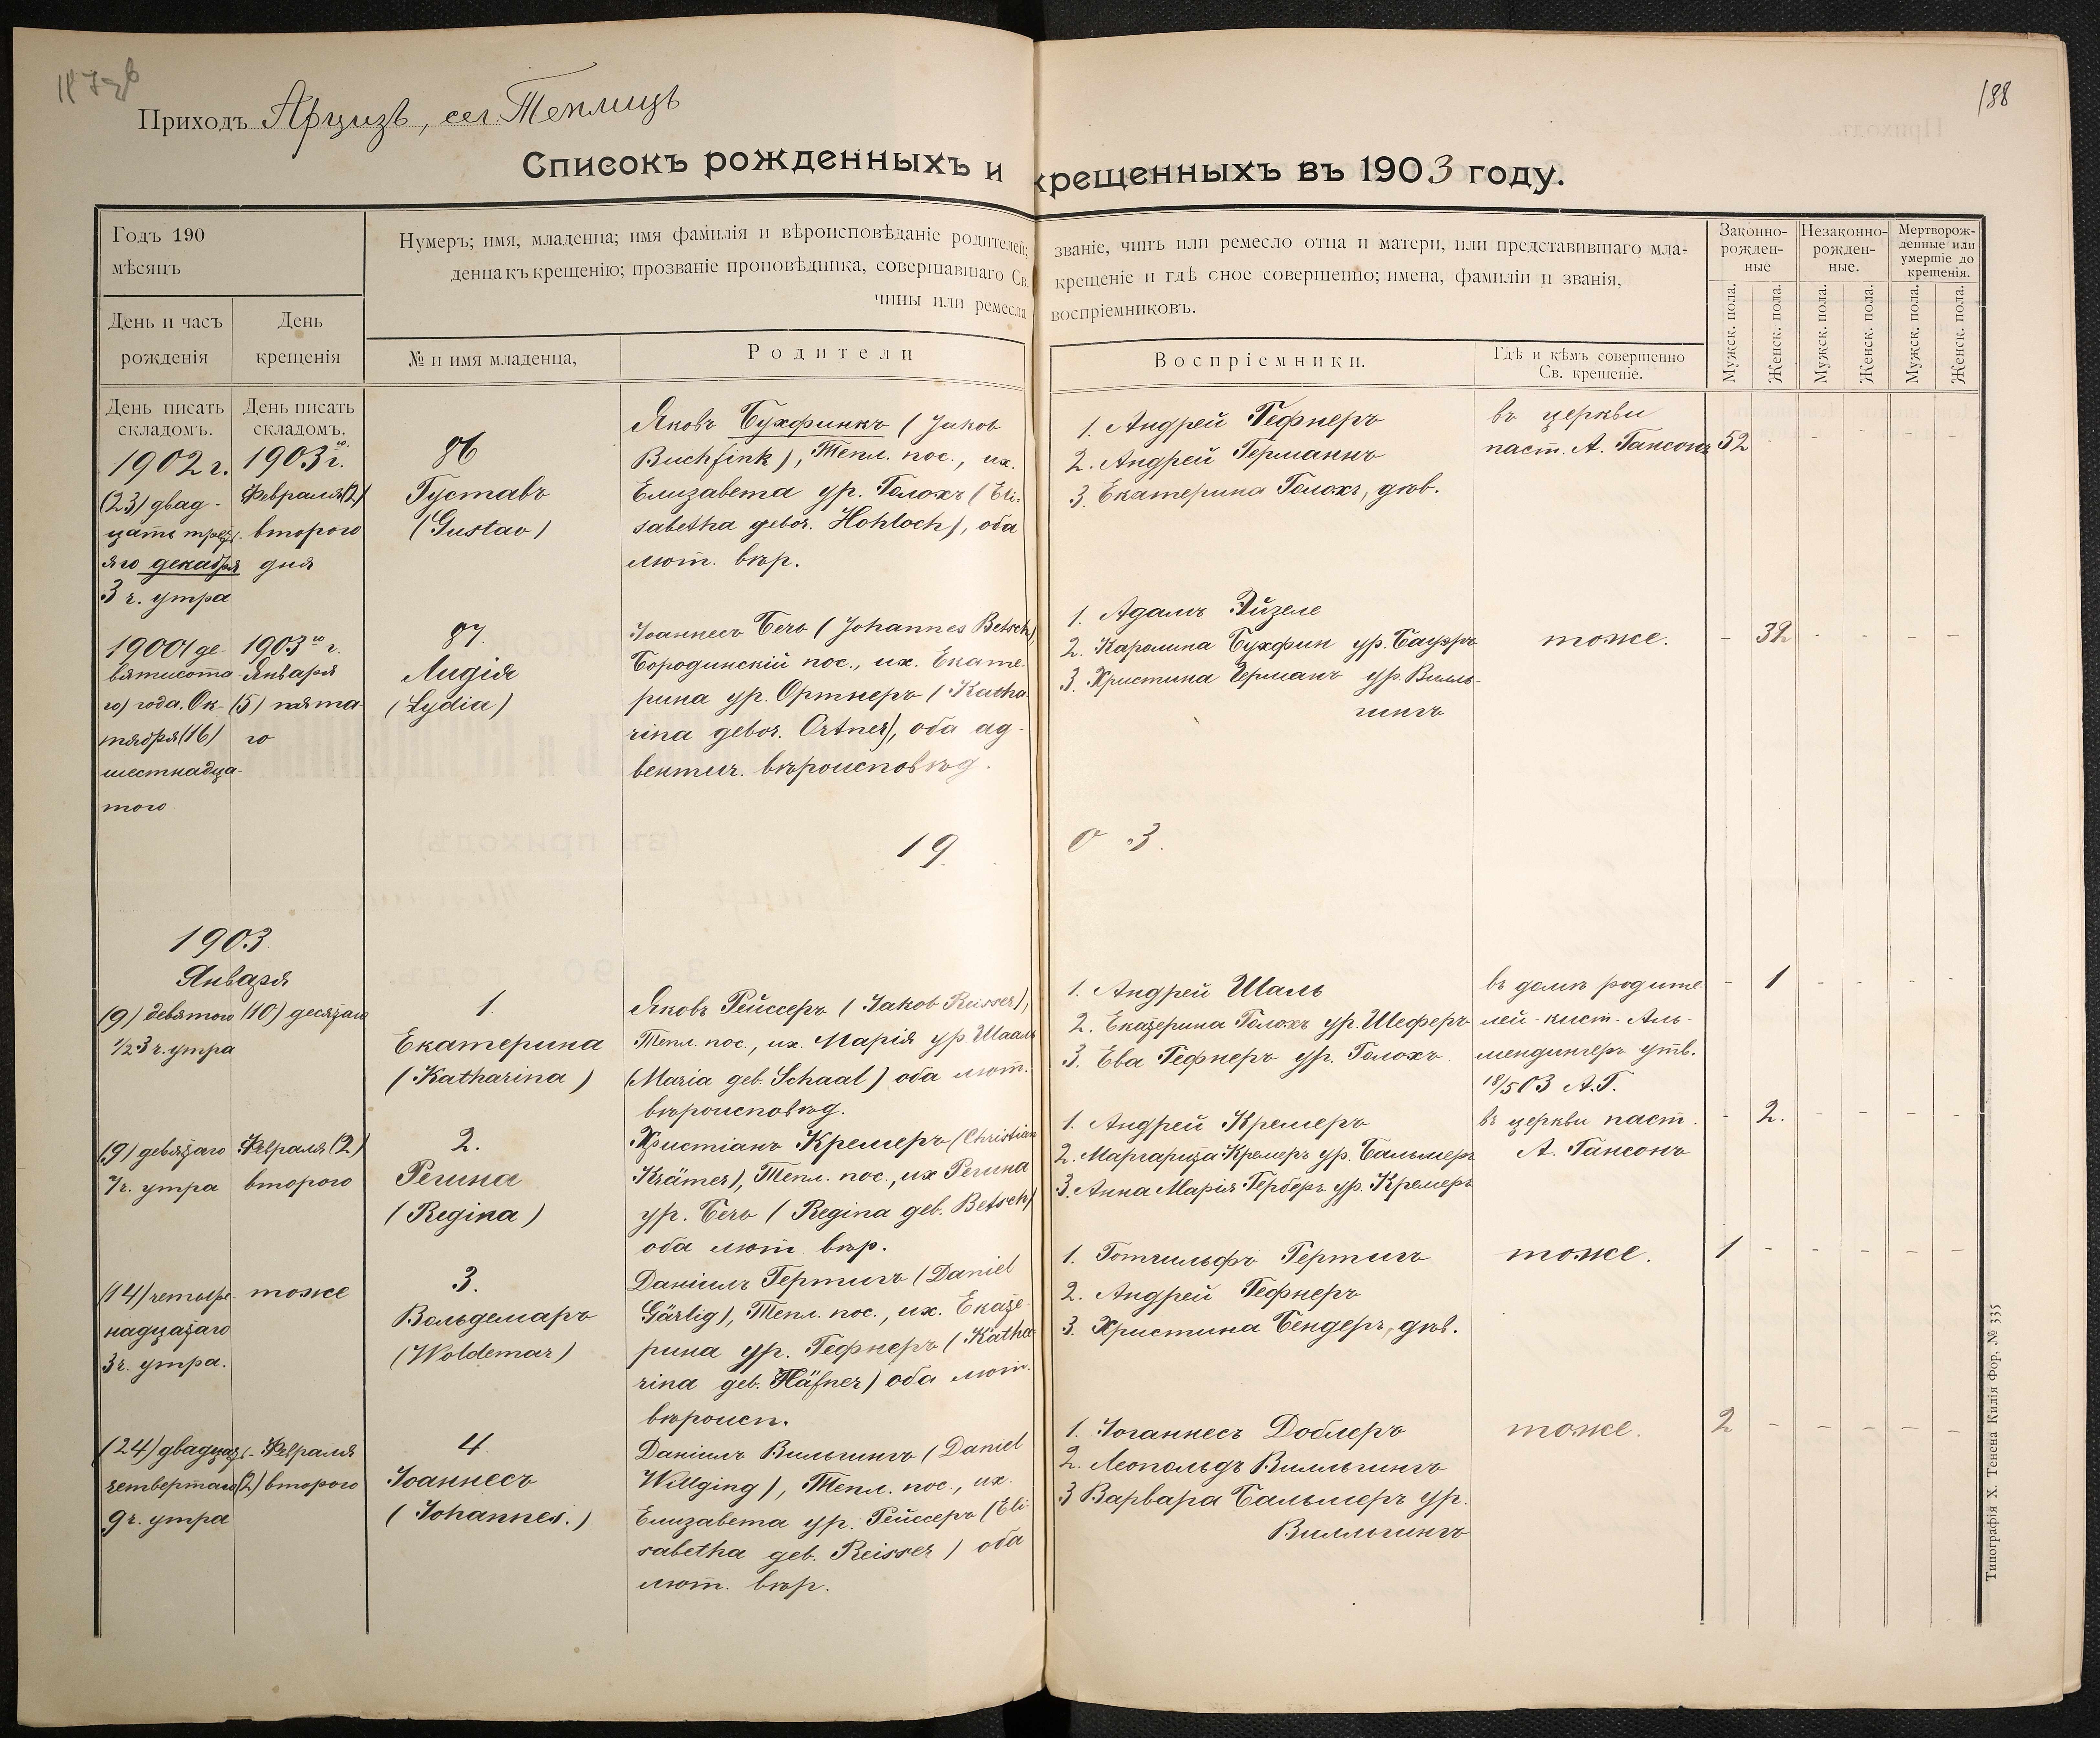 188
Приходъ Арцизъ, сел. Теплицъ
Списокъ рожденныхъ и крещенныхъ въ 1903 году.
Годъ 190
мѣсяцъ
День и часъ
рожденія
День
крещенія
Нумеръ; имя, младенца; имя фамилія и вѣроисповѣданіе родителей; званіе, чинъ или ремесло отца и матери, или представившаго мла-
денца къ крещенію; прозваніе проповѣдника, совершавшаго Св. крещеніе и гдѣ оное совершенно; имена, фамиліи и званія,
чины или ремесла воспріемниковъ.
№ и имя младенца,
Родители
Воспріемники.
Гдѣ и кѣмъ совершенно
Св. крещеніе.
Законно-
рожден-
ные
Незаконно-
рожден-
ные.
Мертворож-
денные или
умершіе до
крещенія.
Мужск. пола.
Женск. пола.
Мужск. пола.
Женск. пола.
Мужск. пола.
Женск. пола.
День писать
складомъ.
День писать
складомъ.
1902 г.
(23) двад-
цать треть-
яго декабря
3 ч. утра
1903го г.
Февраля (2)
второго
дня
86
Густавъ
(Gustav)
Яковъ Бухфинкъ (Jakob
Buchfink), Тепл. пос., их.
Елизавета ур. Голохъ (Eli-
sabetha gebor. Hohloch), оба
лют. вѣр.
1. Андрей Гефнеръ
2. Андрей Германнъ
3. Екатерина Голохъ, дѣв.
въ церкви
паст. А. Гансонъ
52 - - - - -
1900 (де-
вятисота-
го) года. Ок-
тября (16)
шестнадца-
того
1903го г.
Января
(5) пята
го
87.
Лидія
(Lydia)
Іоаннесъ Бечъ (Johannes Betsch),
Бородинскій пос., их. Екате-
рина ур. Ортнеръ (Katha-
rina gebor. Ortner), оба ад-
вентич. вѣроисповѣд.
1. Адамъ Эйзеле
2. Каролина Бухфин ур. Бауэръ
3. Христина Германъ ур. Вилль-
гингъ
тоже.
- 32 - - - -
1903.
1903.
Января
(9) девятого
1/2 3 ч. утра
(10) десятаго
1.
Екатерина
(Katharina)
Яковъ Рейссеръ (Jakob Reisser),
Тепл. пос., их. Марія ур. Шааль
(Maria geb. Schaal) оба лют.
вѣроисповѣд.
1. Андрей Шаль
2. Екатерина Голохъ ур. Шеферъ
3. Ева Гефнеръ ур. Голохъ
въ домѣ родите
лей - кист. Аль-
мендингеръ утв.
18/5 03 А.Г.
- 1 - - - -
(9) девятаго
7 ч. утра
Февраля (2)
второго
2.
Регина
(Regina)
Христіанъ Кремеръ (Christian
Krämer), Тепл. пос., их Регина
ур. Бечъ (Regina geb. Betsch)
оба лют вѣр.
1. Андрей Кремеръ
2. Маргарита Кремеръ ур. Бальмеръ
3. Анна Марія Герберъ ур. Кремеръ
въ церкви паст.
А. Гансонъ
- 2. - - - -
(14) четыре-
надцатаго
3 ч. утра.
тоже
3.
Вольдемаръ
(Woldemar)
Даніилъ Гертигъ (Daniel
Gärtig), Тепл. пос., их. Екате-
рина ур. Гефнеръ (Katha-
rina geb. Häfner) оба лют.
вѣроисп.
1. Готгильфъ Гертигъ
2. Андрей Гефнеръ
3. Христина Бендеръ, дѣв.
тоже.
1 - - - - -
(24) двадцать-
четвертаго
9 ч. утра
Февраля
(2) второго
4.
Іоаннесъ
(Johannes.)
Даніилъ Вильгингъ (Daniel
Willging), Тепл. пос., их.
Елизавета ур. Рейссеръ (Eli
sabetha geb. Reisser) оба
лют. вѣр.
1. Іоганнесъ Доблеръ
2. Леопольдъ Вилльгингъ
3 Варвара Бальмеръ ур.
Вилльгингъ
тоже.
2 - - - - -
Типографія Х. Тенена Килія Фор. № 335